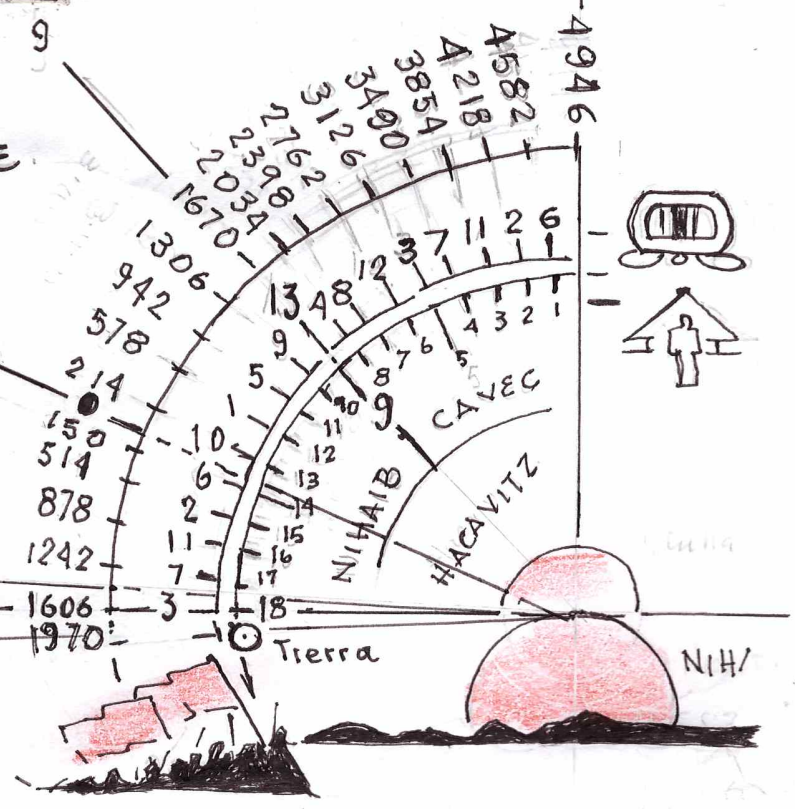 9
4946
4582
4218
3854
3490
3126
2762
2398
2034
1670
1306
942
578
214
150
514
878
1242
1606
1970
6
2
11
7
3
12
8
4
13
9
5
1
10
6
2
11
7
3
1
2
3
4
5
6
7
8
9
10
11
12
13
14
15
16
17
18
CAVEC
NIHAIB
HACAVITZ
Tierra
NIHA